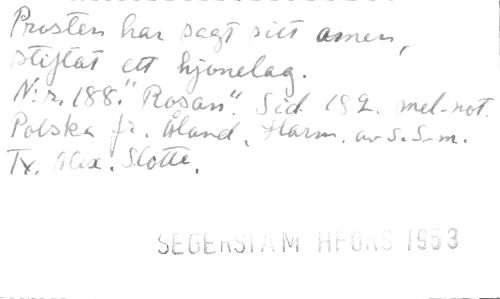 Prosten har sagt sitt amen,
stiftat ett hjonelag.
N:r. 188. "Rosan". Sid. 182. mel-not.
Polska fr. Åland. Harm. av S. S-m.
Tx. Alex. Slotte.
SEGERSTAM HFORS 1953